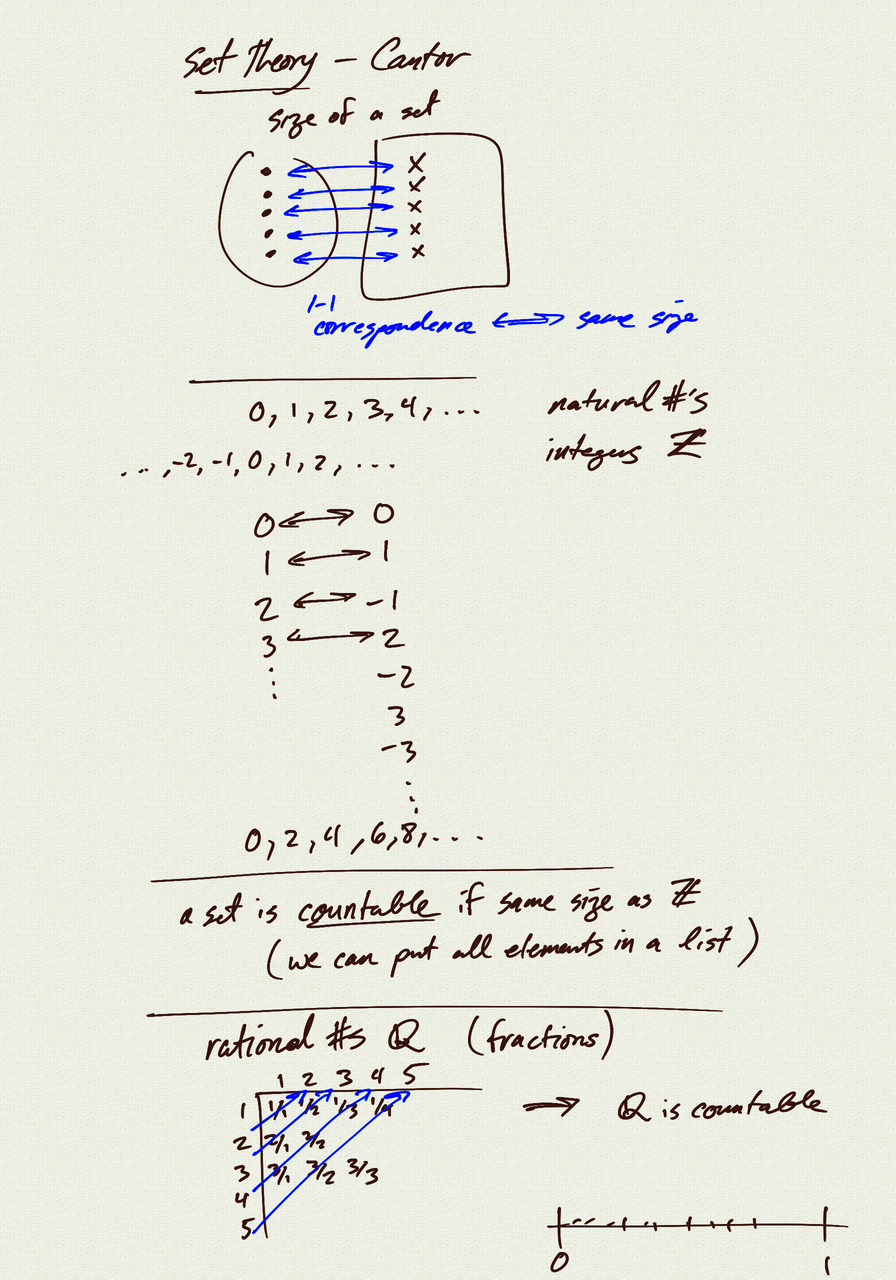 Set Theory – Cantor
size of a set
x
x
x
x
x
1-1
correspondence ⟷ same size
0, 1, 2, 3, 4, ... natural #'s
..., -2, -1, 0, 1, 2, ... integers ℤ
0 ⟷ 0
1 ⟷ 1
2 ⟷ -1
3 ⟷ 2
⋮ -2
3
-3
⋮
0, 2, 4, 6, 8, ...
a set is countable if same size as ℤ
(we can put all elements in a list)
rational #s ℚ (fractions)
1 2 3 4 5
1 1/1 1/2 1/3 1/4 → ℚ is countable
2 2/1 2/2
3 3/1 3/2 3/3
4
5
0 1